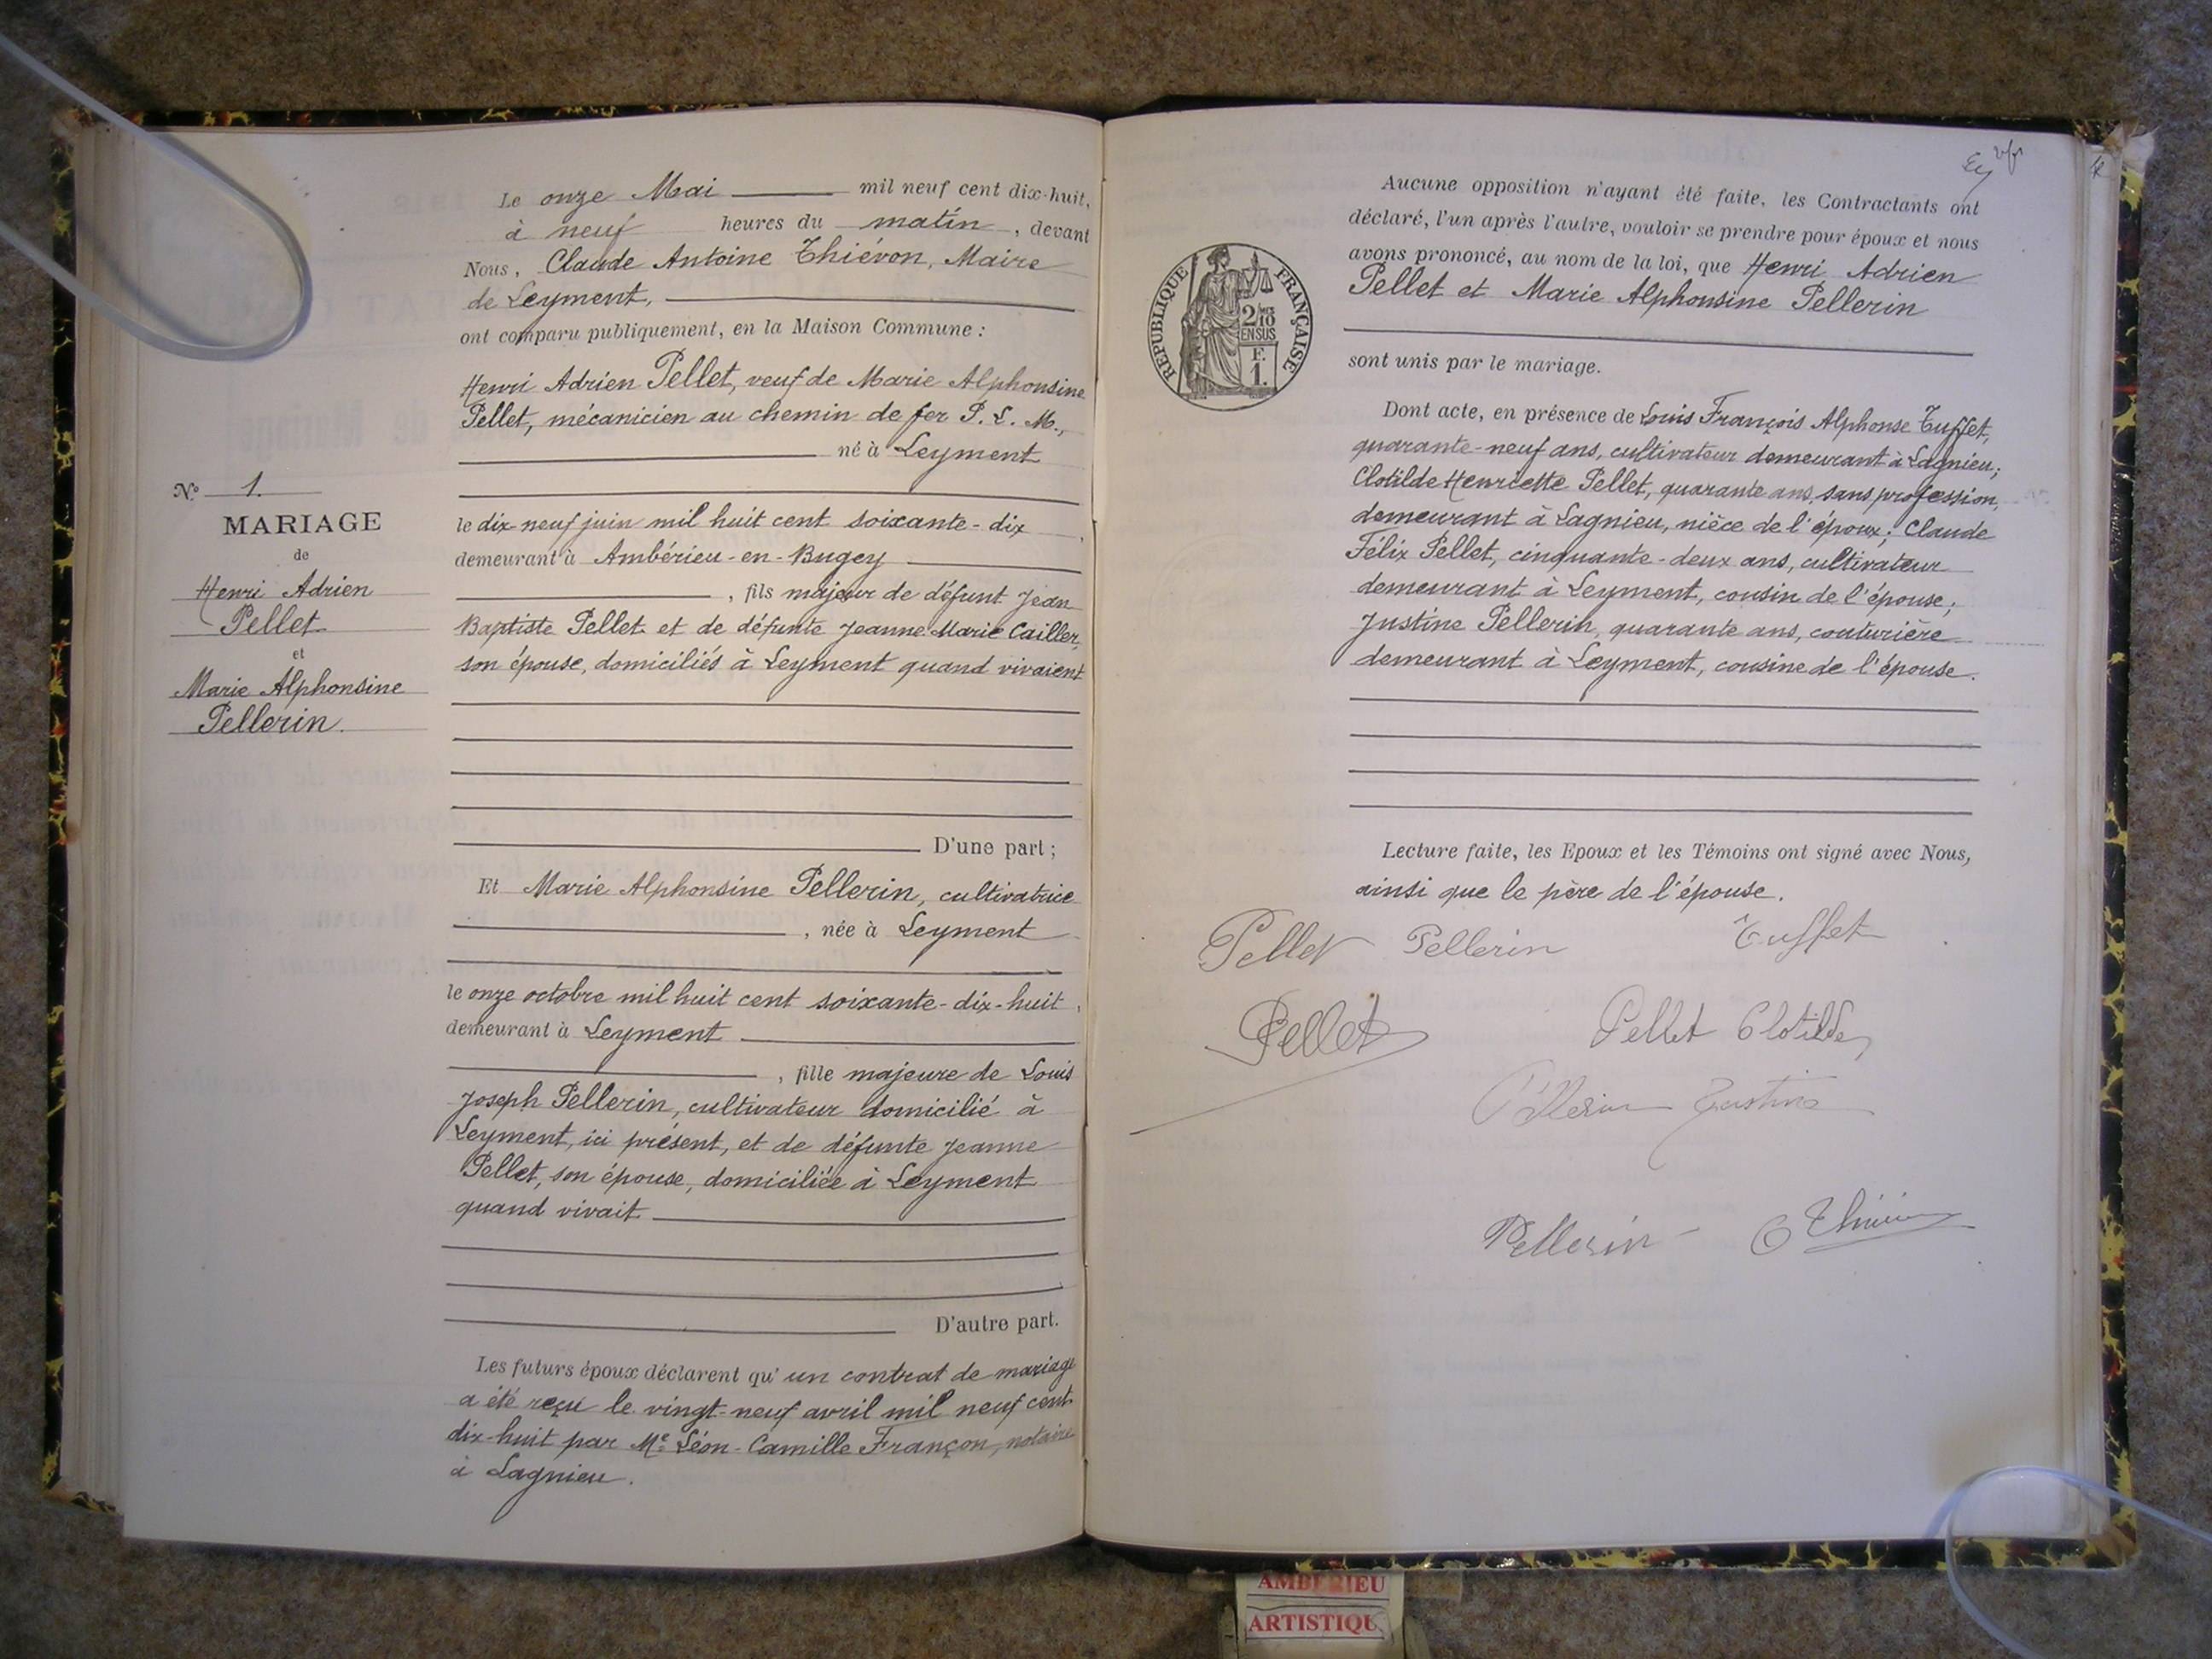 N° 1.
MARIAGE
de
Henri Adrien
Pellet
et
Marie Alphonsine
Pellerin.
Le onze Mai mil neuf cent dix-huit,
à neuf heures du matin, devant
Nous, Claude Antoine Thiévon, Maire
de Leyment,
ont comparu publiquement, en la Maison Commune :
Henri Adrien Pellet, veuf de Marie Alphonsine
Pellet, mécanicien au chemin de fer P. L. M.,
né à Leyment
le dix-neuf juin mil huit cent soixante-dix,
demeurant à Ambérieu-en-Bugey
, fils majeur de défunt Jean
Baptiste Pellet et de défunte Jeanne Marie Cailler,
son épouse, domiciliés à Leyment quand vivaient
D'une part ;
Et Marie Alphonsine Pellerin, cultivatrice
, née à Leyment
le onze octobre mil huit cent soixante-dix-huit,
demeurant à Leyment
, fille majeure de Louis
Joseph Pellerin, cultivateur domicilié à
Leyment, ici présent, et de défunte Jeanne
Pellet, son épouse, domiciliée à Leyment
quand vivait
D'autre part.
Les futurs époux déclarent qu'un contrat de mariage
a été reçu le vingt-neuf avril mil neuf cent
dix-huit par Me Léon-Camille Françon, notaire
à Lagnieu.
Aucune opposition n'ayant été faite, les Contractants ont
déclaré, l'un après l'autre, vouloir se prendre pour époux et nous
avons prononcé, au nom de la loi, que Henri Adrien
Pellet et Marie Alphonsine Pellerin
sont unis par le mariage.
REPUBLIQUE FRANÇAISE
2/10
EN SUS
F.
1.
Dont acte, en présence de Louis François Alphonse Tuffet,
quarante-neuf ans, cultivateur demeurant à Lagnieu;
Clotilde Henriette Pellet, quarante ans, sans profession,
demeurant à Lagnieu, nièce de l'époux; Claude
Félix Pellet, cinquante-deux ans, cultivateur
demeurant à Leyment, cousin de l'épouse;
Justine Pellerin, quarante ans, couturière
demeurant à Leyment, cousine de l'épouse.
Lecture faite, les Epoux et les Témoins ont signé avec Nous,
ainsi que le père de l'épouse.
Pellet Pellerin Tuffet
Pellet Pellet Clotilde
Pellerin Justine
Pellerin
AMBERIEU
ARTISTIQU